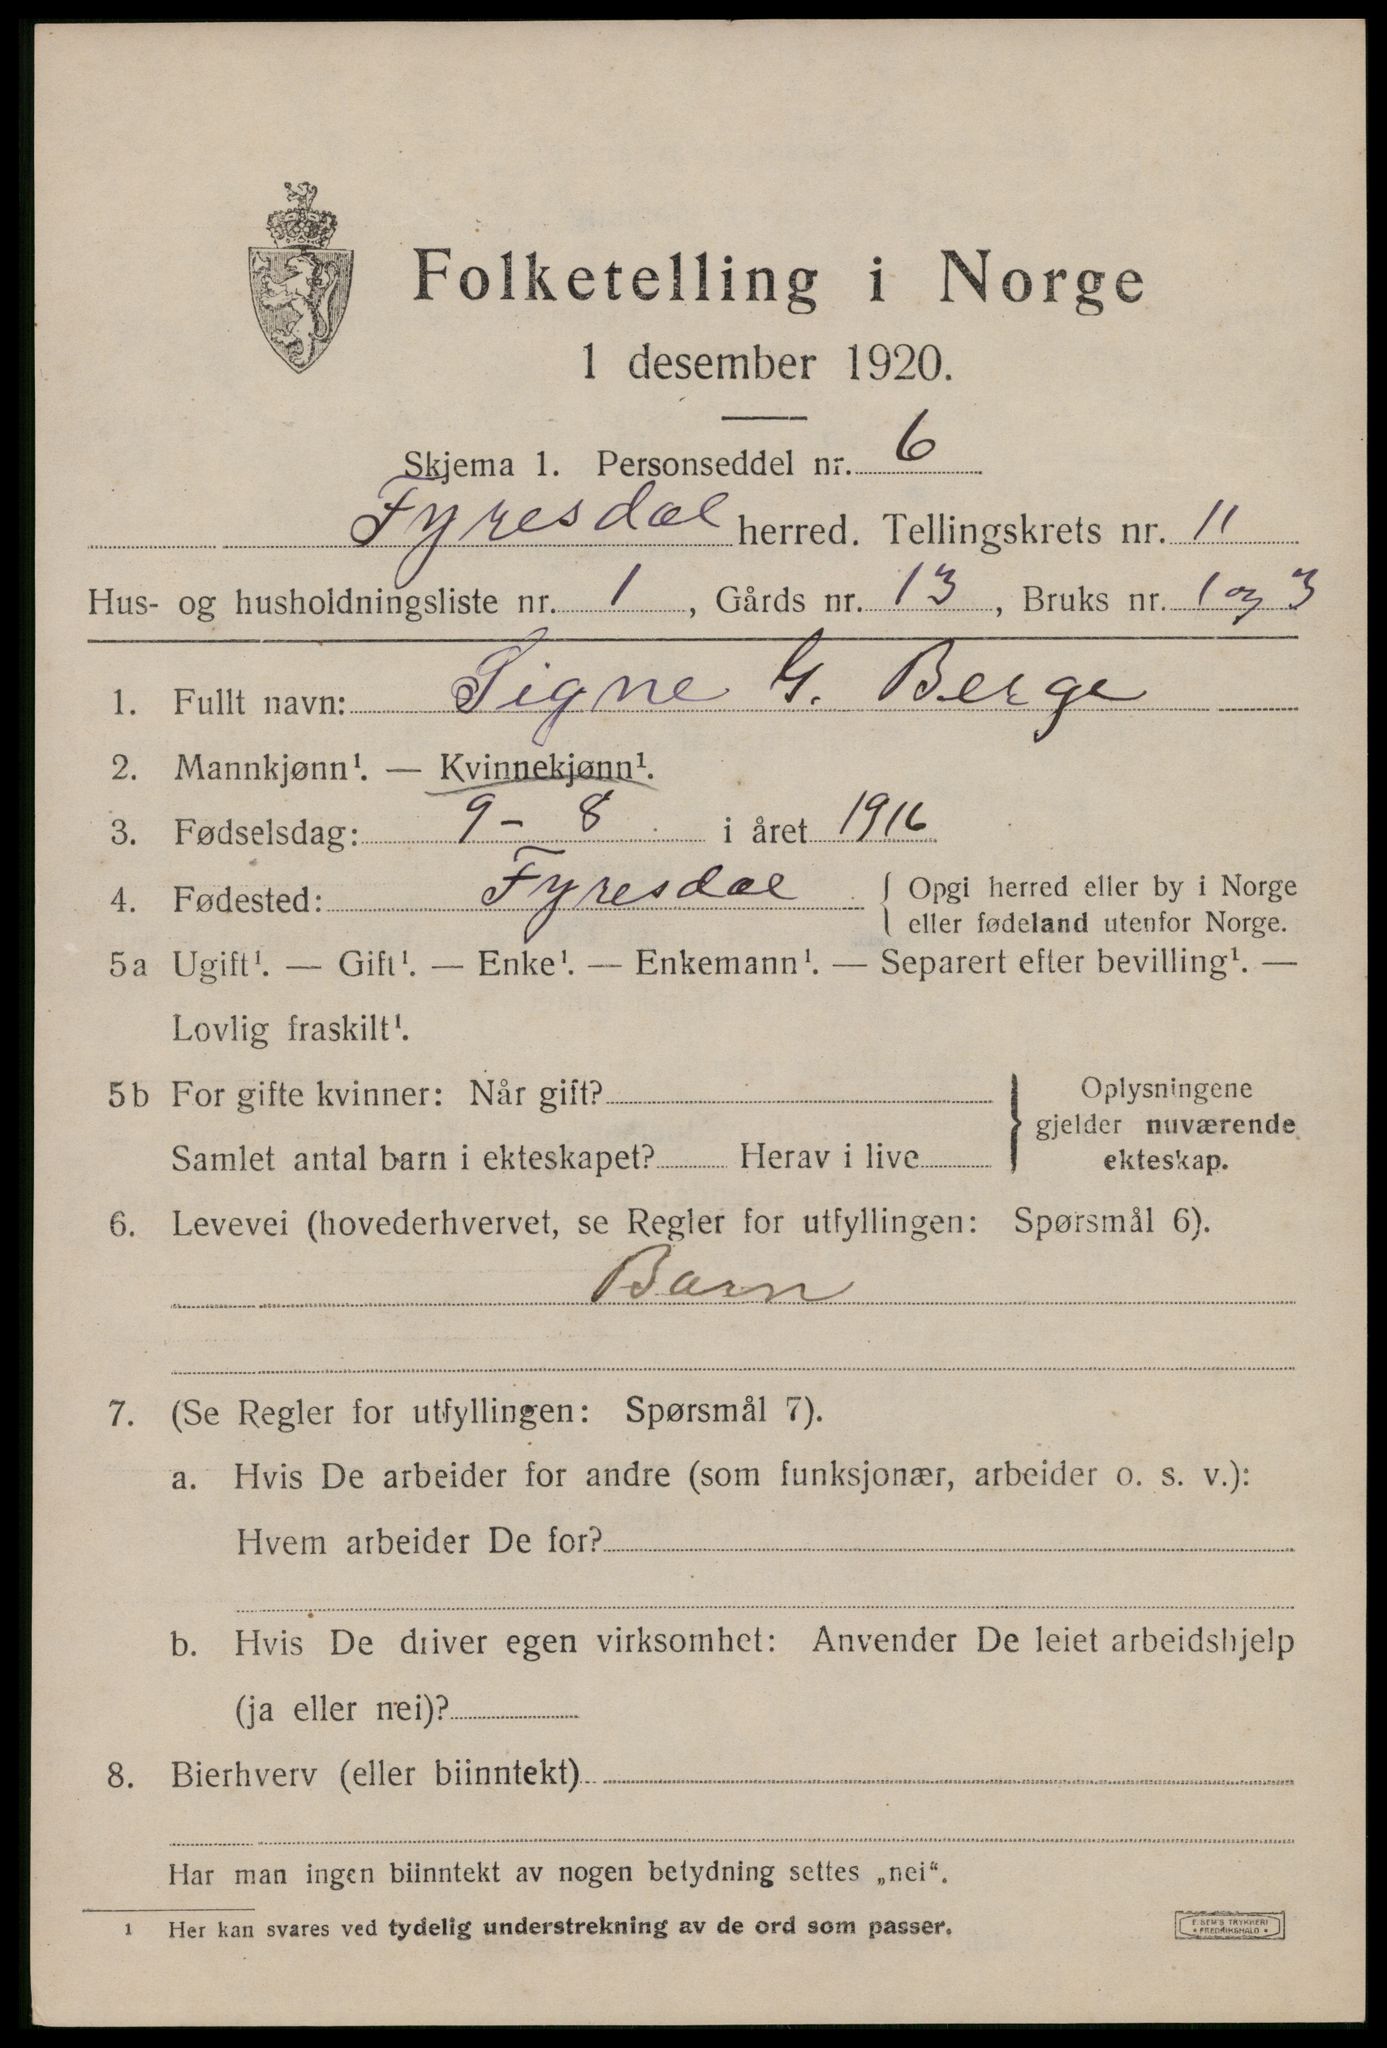 Folketelling i Norge
1 desember 1920.
Skjema 1. Personseddel nr. 6
Fyresdal herred. Tellingskrets nr. 11
Hus- og husholdningsliste nr. 1, Gårds nr. 13, Bruks nr. 1 og 3
1. Fullt navn: Signe G. Berge
2. Mannkjønn¹. — Kvinnekjønn¹.
3. Fødselsdag: 9 – 8 i året 1916
4. Fødested: Fyresdal { Opgi herred eller by i Norge
eller fødeland utenfor Norge.
5a Ugift¹. — Gift¹. — Enke¹. — Enkemann¹. — Separert efter bevilling¹. —
Lovlig fraskilt¹.
5b For gifte kvinner: Når gift? } Oplysningene
gjelder nuværende
Samlet antal barn i ekteskapet? Herav i live ekteskap.
6. Levevei (hovederhvervet, se Regler for utfyllingen: Spørsmål 6).
Barn
7. (Se Regler for utfyllingen: Spørsmål 7).
a. Hvis De arbeider for andre (som funksjonær, arbeider o. s. v.):
Hvem arbeider De for?
b. Hvis De driver egen virksomhet: Anvender De leiet arbeidshjelp
(ja eller nei)?
8. Bierhverv (eller biinntekt)
Har man ingen biinntekt av nogen betydning settes „nei“.
¹ Her kan svares ved tydelig understrekning av de ord som passer.
E. SEM'S TRYKKERI
• FREDRIKSHALD •